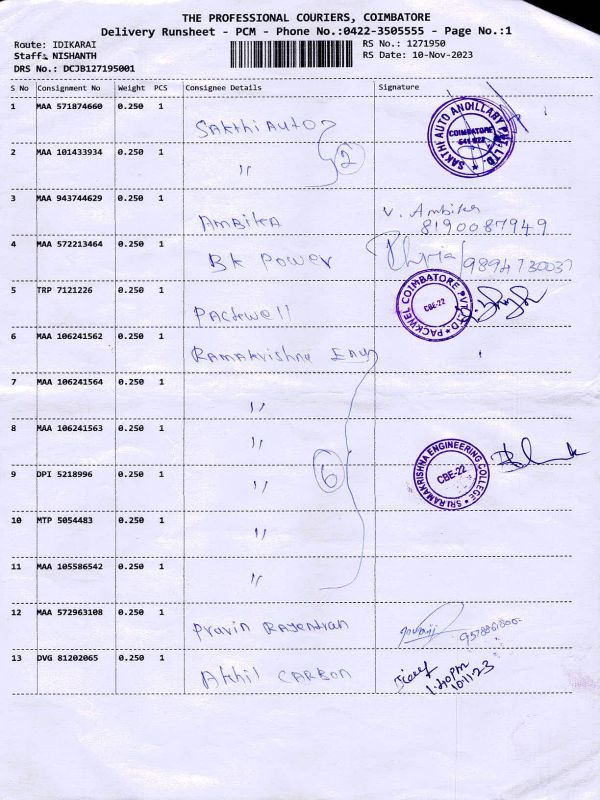 THE PROFESSIONAL COURIERS, COIMBATORE
Delivery Runsheet - PCM - Phone No.:0422-3505555 - Page No.:1
Route: IDIKARAI
RS No.: 1271950
Staff: NISHANTH
RS Date: 10-Nov-2023
DRS No.: DCJB127195001
S No Consignment No Weight PCS Consignee Details Signature
1 MAA 571874660 0.250 1 Sakthi Auto
SAKTHI AUTO ANCILLARY PVT. LTD
COIMBATORE
641 022
2 MAA 101433934 0.250 1 " 2
3 MAA 943744629 0.250 1 Ambika V. Ambika
8190087949
4 MAA 572213464 0.250 1 BK Power
5 TRP 7121226 0.250 1 Packwell
PACKWEL COIMBATORE PVT LTD
CBE-22
6 MAA 106241562 0.250 1 Ramakrishna Eng
7 MAA 106241564 0.250 1 "
8 MAA 106241563 0.250 1 "
9 DPI 5218996 0.250 1 " 6
SRI RAMAKRISHNA ENGINEERING COLLEGE
CBE-22
10 MTP 5054483 0.250 1 "
11 MAA 105586542 0.250 1 "
12 MAA 572963108 0.250 1 Pravin Rajendran
13 DVG 81202065 0.250 1 Akhil CARBON
1.40pm
10.11.23